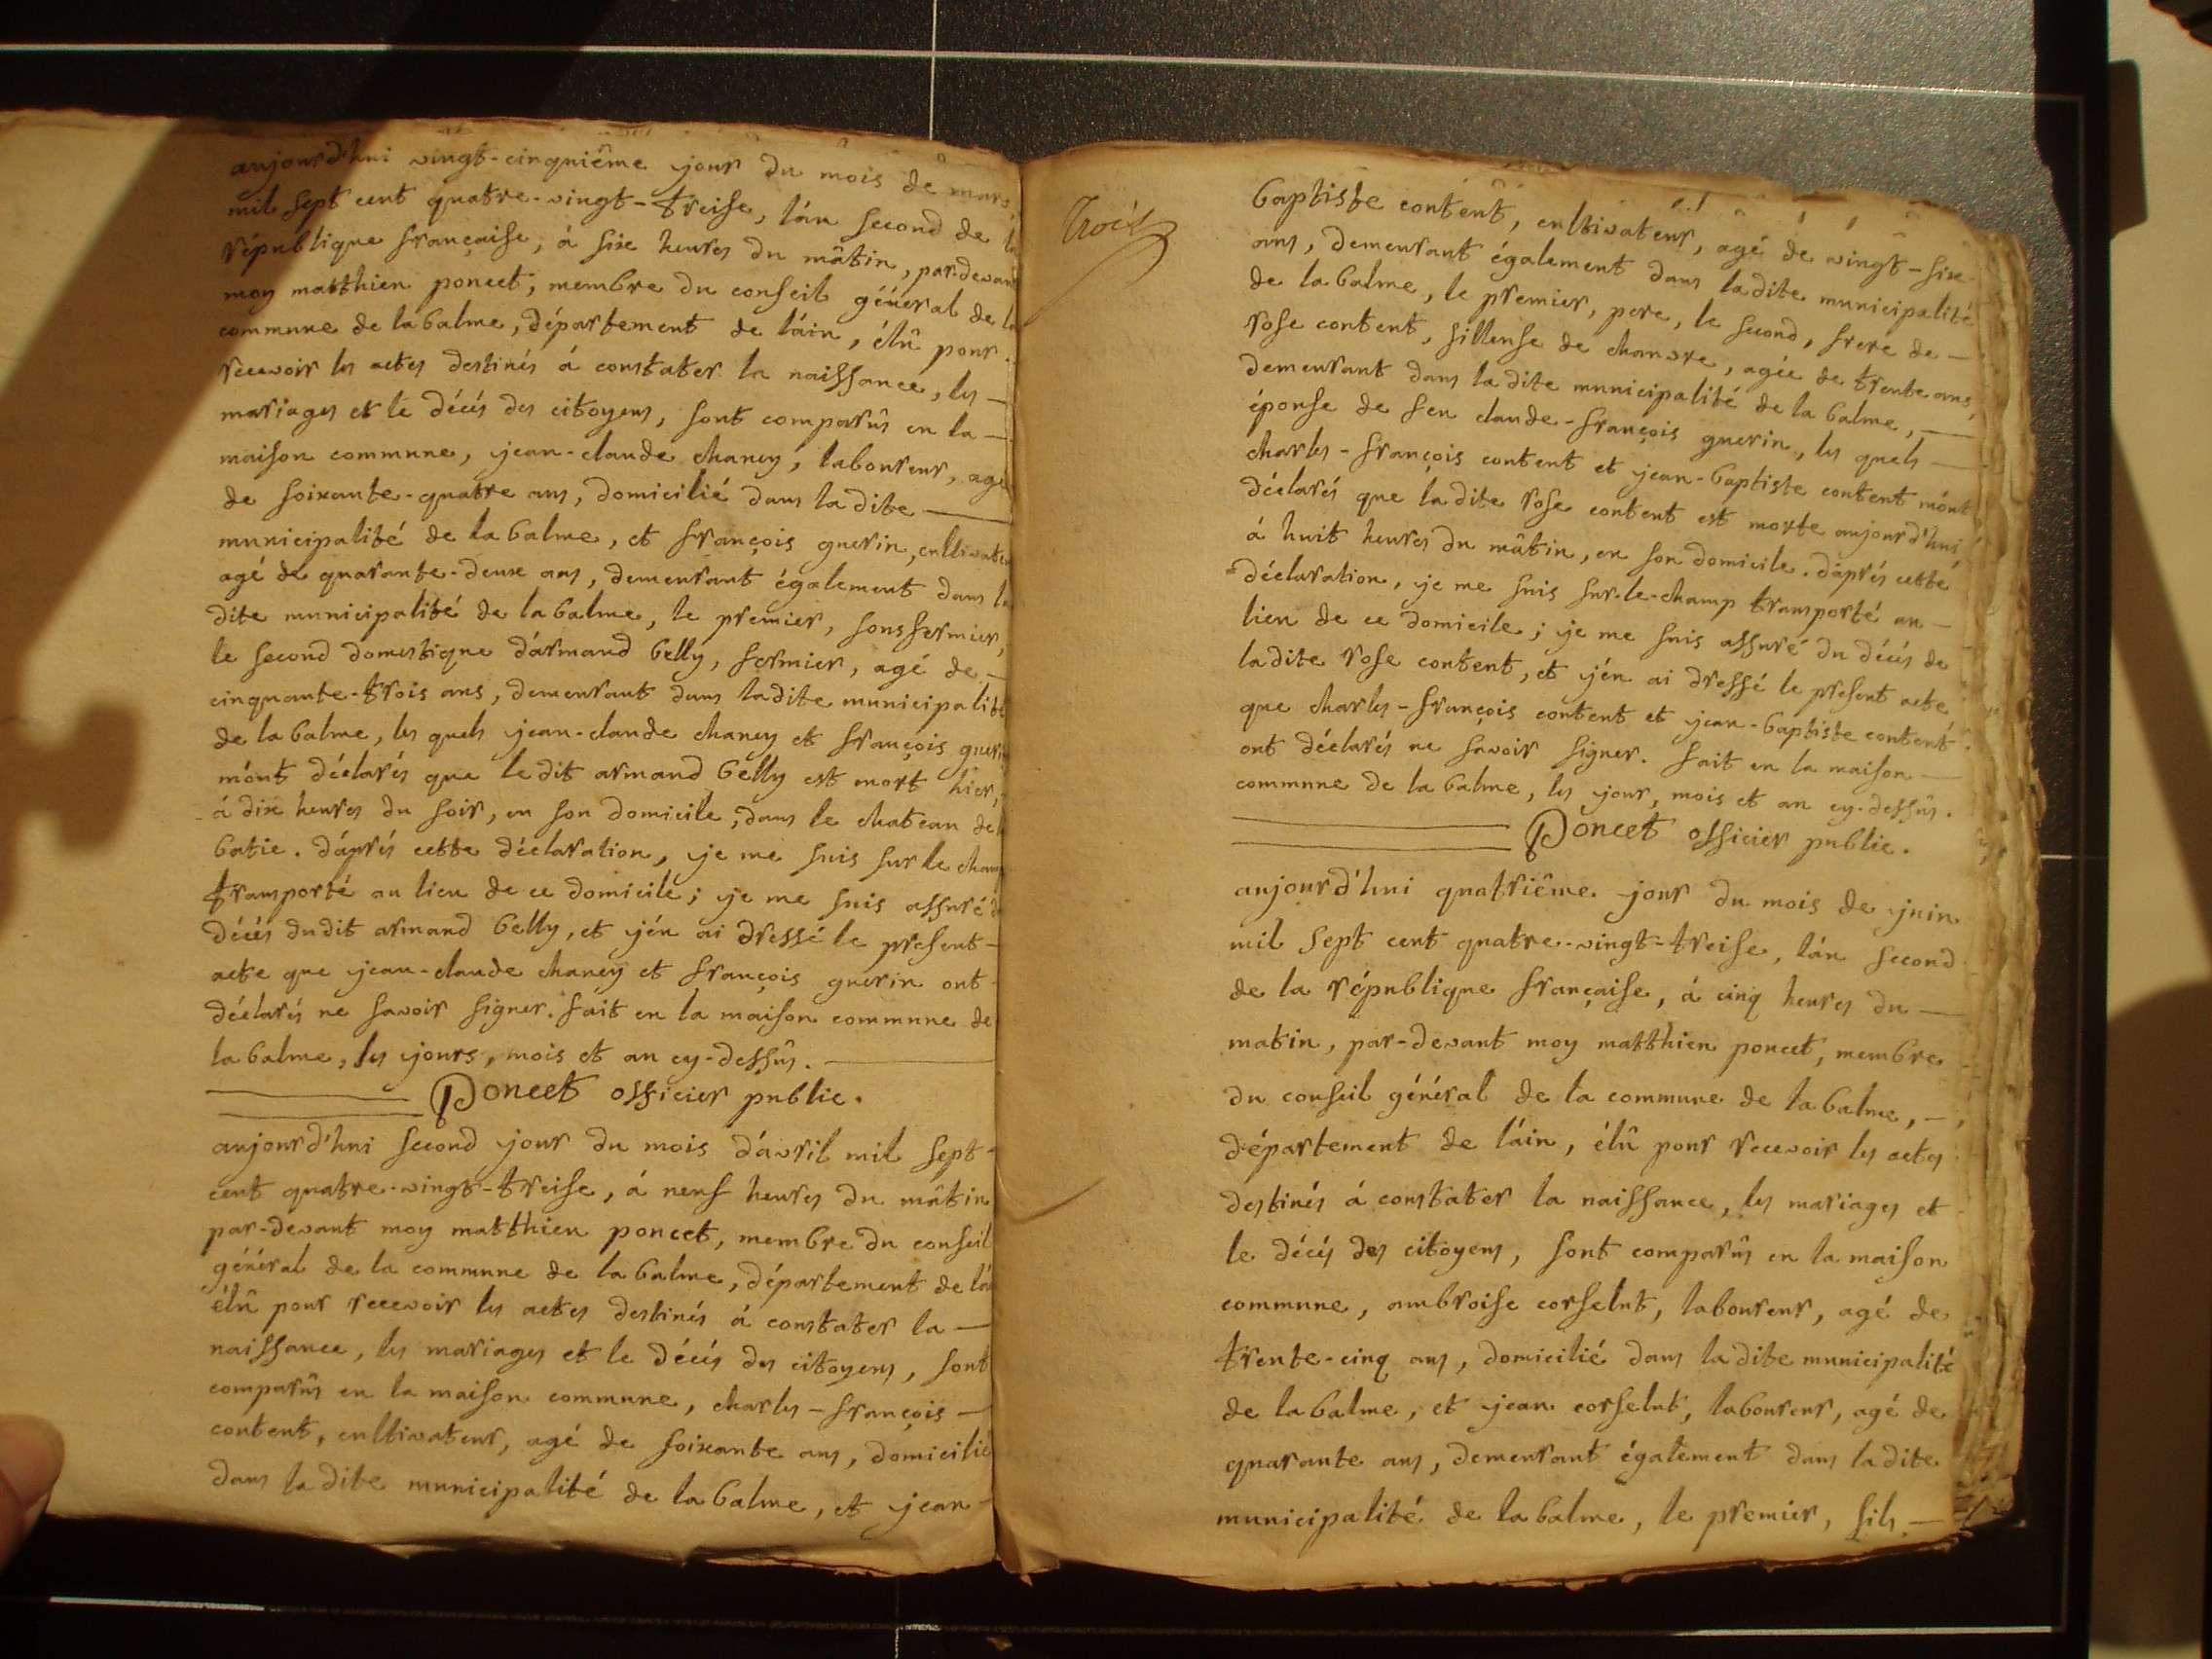 aujourd'hui vingt-cinquiême jour du mois de mars,
mil sept cent quatre-vingt-treise, l'án second de la
république française, á six heures du mâtin, par-devant
moy matthieu poncet, membre du conseil général de la
commune de la balme, département de l'áin, élû pour
recevoir les actes destinés á constater la naissance, les
mariages et le décés des citoyens, sont comparûs en la
maison commune, jean-claude chaney, laboureur, agé
de soixante-quatre ans, domicilié dans la dite
municipalité de la balme, et françois guerin, cultivateur
agé de quarante-deux ans, demeurant également dans la
dite municipalité de la balme, le premier, sousfermier,
le second domestique d'ármand belly, fermier, agé de
cinquante-trois ans, demeurant dans la dite municipalité
de la balme, les quels jean-claude chaney et françois guerin
m'ónt déclarés que le dit armand belly est mort hier,
á dix heures du soir, en son domicile, dans le chateau de la
batie. d'áprés cette déclaration, je me suis sur le champ
transporté au lieu de ce domicile; je me suis assuré du
décés dudit armand belly, et j'én ai dressé le present
acte que jean-claude chaney et françois guerin ont
déclarés ne savoir signer. fait en la maison commune de
la balme, les jours, mois et an cy-dessûs.
Poncet officier public.
aujourd'hui second jour du mois d'ávril mil sept
cent quatre-vingt-treise, á neuf heures du mâtin
par-devant moy matthieu poncet, membre du conseil
général de la commune de la balme, département de l'áin
élû pour recevoir les actes destinés á constater la
naissance, les mariages et le décés des citoyens, sont
comparûs en la maison commune, charles-françois
content, cultivateur, agé de soixante ans, domicilié
dans la dite municipalité de la balme, et jean
trois
baptiste content, cultivateur, agé de vingt-six
ans, demeurant également dans la dite municipalité
de la balme, le premier, pere, le second, frere de
rose content, filleuse de chanvre, agée de trente ans,
demeurant dans la dite municipalité de la balme,
épouse de feu claude-françois guerin, les quels
charles-françois content et jean-baptiste content m'ónt
déclarés que la dite rose content est morte aujourd'hui
á huit heures du mâtin, en son domicile. d'áprés cette
déclaration, je me suis sur-le-champ transporté au
lieu de ce domicile; je me suis assuré du décés de
la dite rose content, et j'én ai dressé le présent acte
que charles-françois content et jean-baptiste content
ont déclarés ne savoir signer. fait en la maison
commune de la balme, les jour, mois et an cy-dessûs.
Poncet officier public.
aujourd'hui quatriême jour du mois de juin
mil sept cent quatre-vingt-treise, l'án second
de la république française, á cinq heures du
matin, par-devant moy matthieu poncet, membre
du conseil général de la commune de la balme,
département de l'áin, élû pour recevoir les actes
destinés á constater la naissance, les mariages et
le décés des citoyens, sont comparûs en la maison
commune, ambroise corselut, laboureur, agé de
trente-cinq ans, domicilié dans la dite municipalité
de la balme, et jean corselut, laboureur, agé de
quarante ans, demeurant également dans la dite
municipalité de la balme, le premier, fils